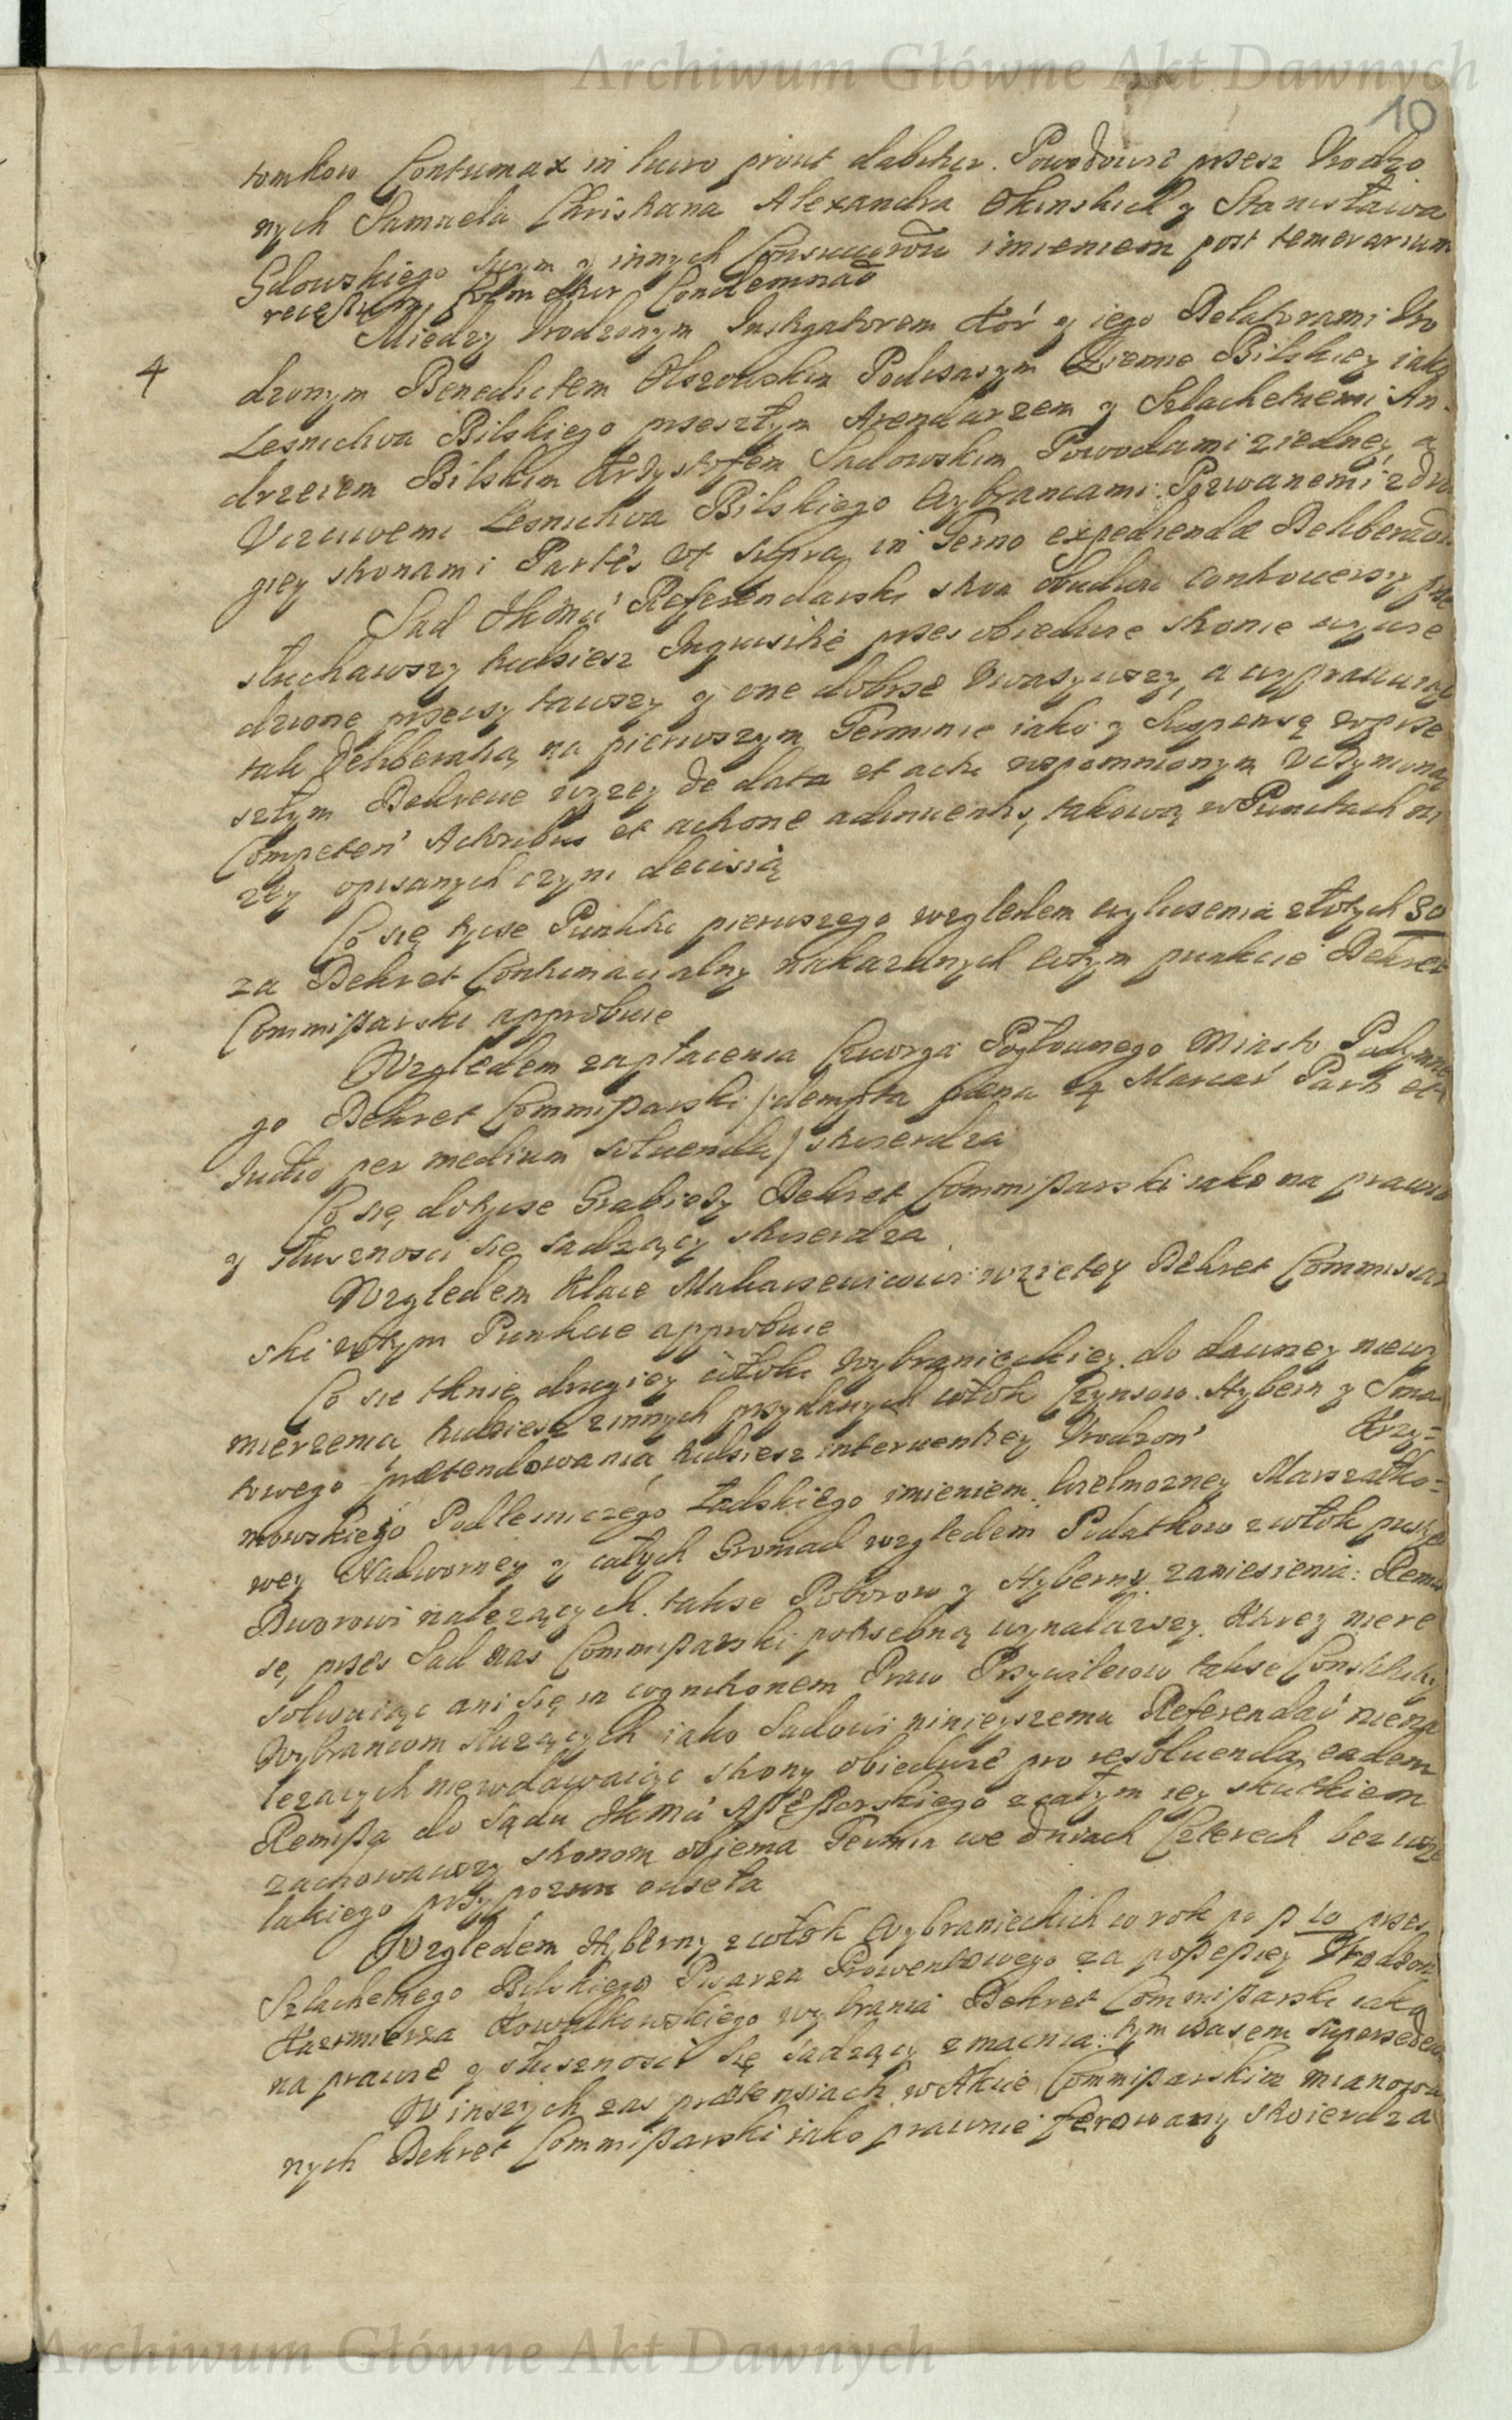 Archiwum Główne Akt Dawnych
10
tomkow Contumax in lucro prout dabitur. Powodowie przez Urodzo
nych Samuela Christiana Alexandra Okinskich y Stanisława
Gdowskiego swym y innych imieniem post temerarium
recessum Condemnãõ
4
Miedzy Urodzonym Instygatorem Kor̃ y iego Delatorami Uro
dzonym Benedictem Olszowskim Podczaszym Ziemie Bilskiey iako
Lesnictwa Bilskiego przeszłym Arendarzem y Szlachetnemi An
drzeiem Bilskim Krzysztofem Sadowskim Powodami z iedney, a
Uczciwemi Lesnictwa Bilskiego Wybrancami Pozwanemi z dru
giey stronami Partes ut supra in Terno expediendæ
Sad JKMci Referendarski stron obudwu controwersyi prze
słuchawszy tudziesz Inquisitie przes obiedwie stronie wywie
dzione przeczytawszy y one dobrze zwazywszy, a wyprawiwszy
tak Deliberatią na pierwszym Terminie iako y Suspensę w prze
szłym Dekrecie wyzey de data et actu wspomnionym
Competen' Actoribus et actione adinventis, takową w Punctach ni
zey opisanych czyni decisią
Co się tycze Punktu pierwszego wzgledem wyliczenia złotych 30
za Dekret Contumacialny nakazanych w tym punkcie Dekret
Commissarski approbuie
Wzgledem zapłacenia Czworga Pogłownego miasto Podymne
go Dekret Commissarski /: dempta pæna Marcar' Parti et
Iudio per medium solvenda/ stwierdza
Co się dotycze Grabiezy Dekret Commissarski iako na prawie
y słusznosci się sadzący stwierdza
Wzgledem Klace Makarsewiczowi wzietey Dekret Commissar
ski w tym Punkcie approbuie
Co się tknie drugiey włoki Wybranieckiey do dawney niewy
mierzenia, tudziesz z innych przydanych włok Czynszow Hybern y
towego prætendowania tudziesz interventiey Urodzon' Krzy=
mowskiego Podlesniczego Ładskiego imieniem Wielmozney Marszałko=
wey Nadworney y całych Gromad wzgledem Podatkow z włok
Dworowi nalezących, takze Poborow y Hyberny zaniesienia: Remis
sę, przes Sad nas Commissarski potrzebną wynalazszy. Ktorey niere
solwuiąc ani się in cognitionem Praw Przywileiow takze Constitucij
Wybrancom sluzących iako Sadowi ninieyszemu Referendar' niena
lezacych niewdawaiąc strony obiedwie pro resolvenda eadem
Remissą do Sądu JKMci Assessorskiego z całym iey skutkiem
zachowawszy stronom obiema Termin we dniach Czterech bez wsze
lakiego przypozwu odseła
Wzgledem Hyberny z włok Wybranieckich w rok po p 10 przes
Szlachetnego Bilskiego Pisarza Prowentowego za possessiey Urodzon
Kazimierza Kowalkowskiego wybrania Dekret Commissarski iako
na prawie y słusznosci się sadzący zmacnia: tym czasem
W inszych zas prætensiach w Akcie Commissarskim mianowa
nych Dekret Commissarski iako prawnie ferowany stwierdza
Archiwum Główne Akt Dawnych